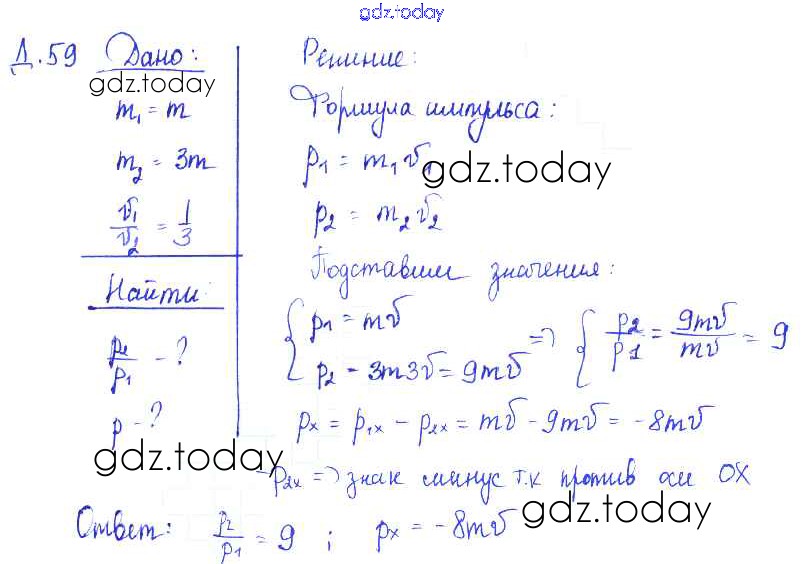 gdz.today
Д.59 Дано:
gdz.today
m₁ = m
m₂ = 3m
v₁/v₂ = 1/3
Найти:
p₂/p₁ - ?
p - ?
Решение:
Формула импульса:
p₁ = m₁v₁
gdz.today
p₂ = m₂v₂
Подставим значения:
{ p₁ = mv
p₂ = 3m3v = 9mv => { p₂/p₁ = 9mv/mv = 9
pₓ = p₁ₓ - p₂ₓ = mv - 9mv = -8mv
gdz.today
-p₂ₓ => знак минус т.к против оси OX
Ответ: p₂/p₁ = 9 ; pₓ = -8mv
gdz.today